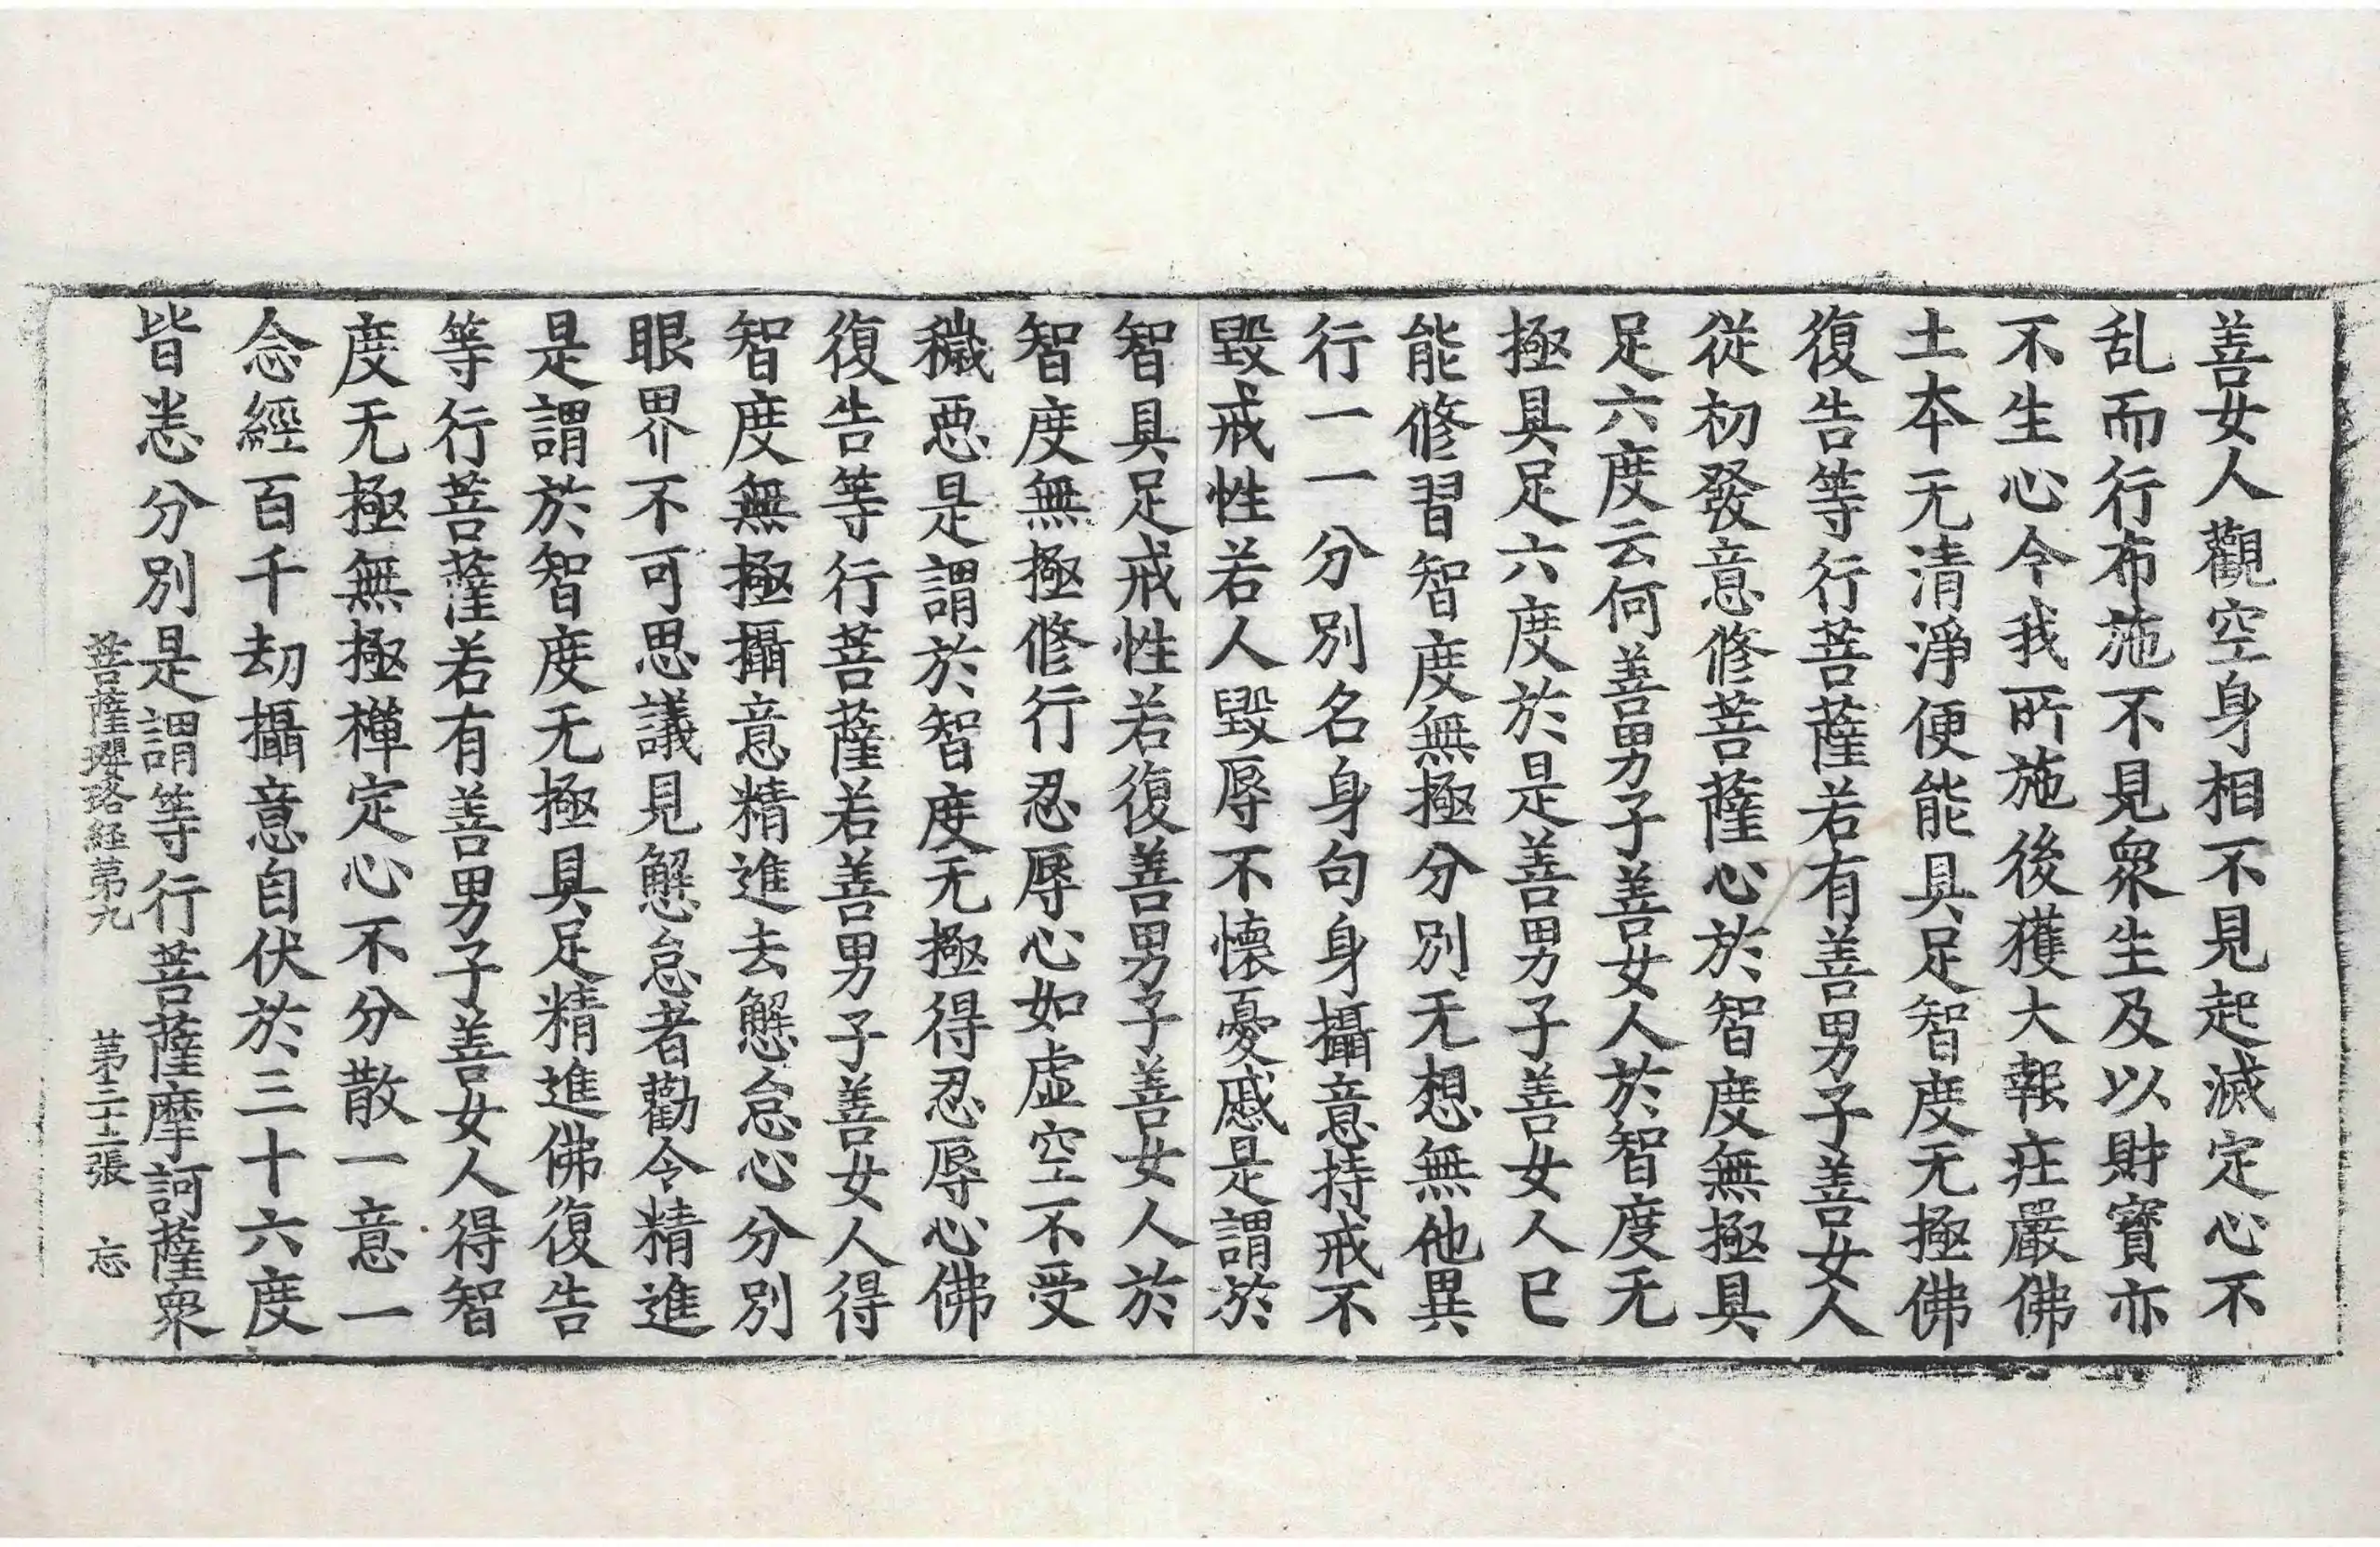 善女人觀空身相不見起滅定心不
乱而行布施不見衆生及以財寳亦
不生心今我所施後獲大報莊嚴佛
土本无清淨便能具足智度无極佛
復告等行菩薩若有善男子善女人
從初發意修菩薩心於智度無極具
足六度云何善男子善女人於智度无
極具足六度於是善男子善女人已
能修習智度無極分別无想無他異
行一一分別名身句身攝意持戒不
毀戒性若人毀辱不懷憂慼是謂於
智具足戒性若復善男子善女人於
智度無極修行忍辱心如虛空不受
穢惡是謂於智度无極得忍辱心佛
復告等行菩薩若善男子善女人得
智度無極攝意精進去懈怠心分別
眼界不可思議見懈怠者勸令精進
是謂於智度无極具足精進佛復告
等行菩薩若有善男子善女人得智
度无極無極禪定心不分散一意一
念經百千劫攝意自伏於三十六度
皆悉分別是謂等行菩薩摩訶薩衆
菩薩瓔珞経苐九　苐三十二張　忘